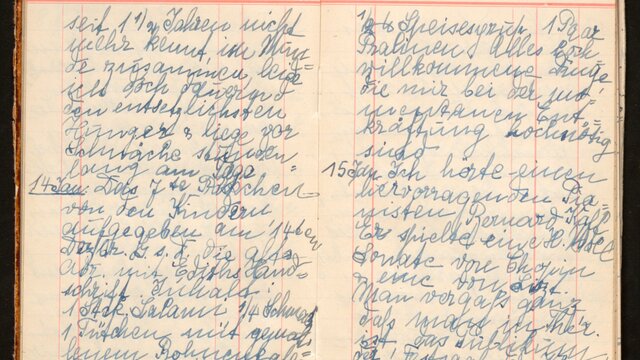 seit 1 1/2 Jahren nicht
mehr kennt, im Mun=
de zusammen, leide
ich doch dauernd
den entsetzlichsten
Hunger & liege vor
Schwäche stunden
lang am
14 Jan. Das 7te Päckchen
von den Kindern
aufgegeben am 14ten
Dezbr. G. s. D. die alte
mit Ediths Hand=
schrift. Inhalt:
1 Stck. Salami 1/4 Schmalz
1 Tütchen mit gemah=
lenem Bohnenkaf=
Speisesyrup, 1 Paar
Pralinen, Alles hoch
willkommene Dinge
die mir bei der mo=
mentanen Ent=
kräftung hochnötig
sind
15 Jan. Ich hörte einen
hervorragenden Pia=
nisten, Bernard Kaff
Er spielte eine
Sonate von Chopin
eine von Liszt.
Man vergaß ganz
daß man in Ther.
ist, das Publikum